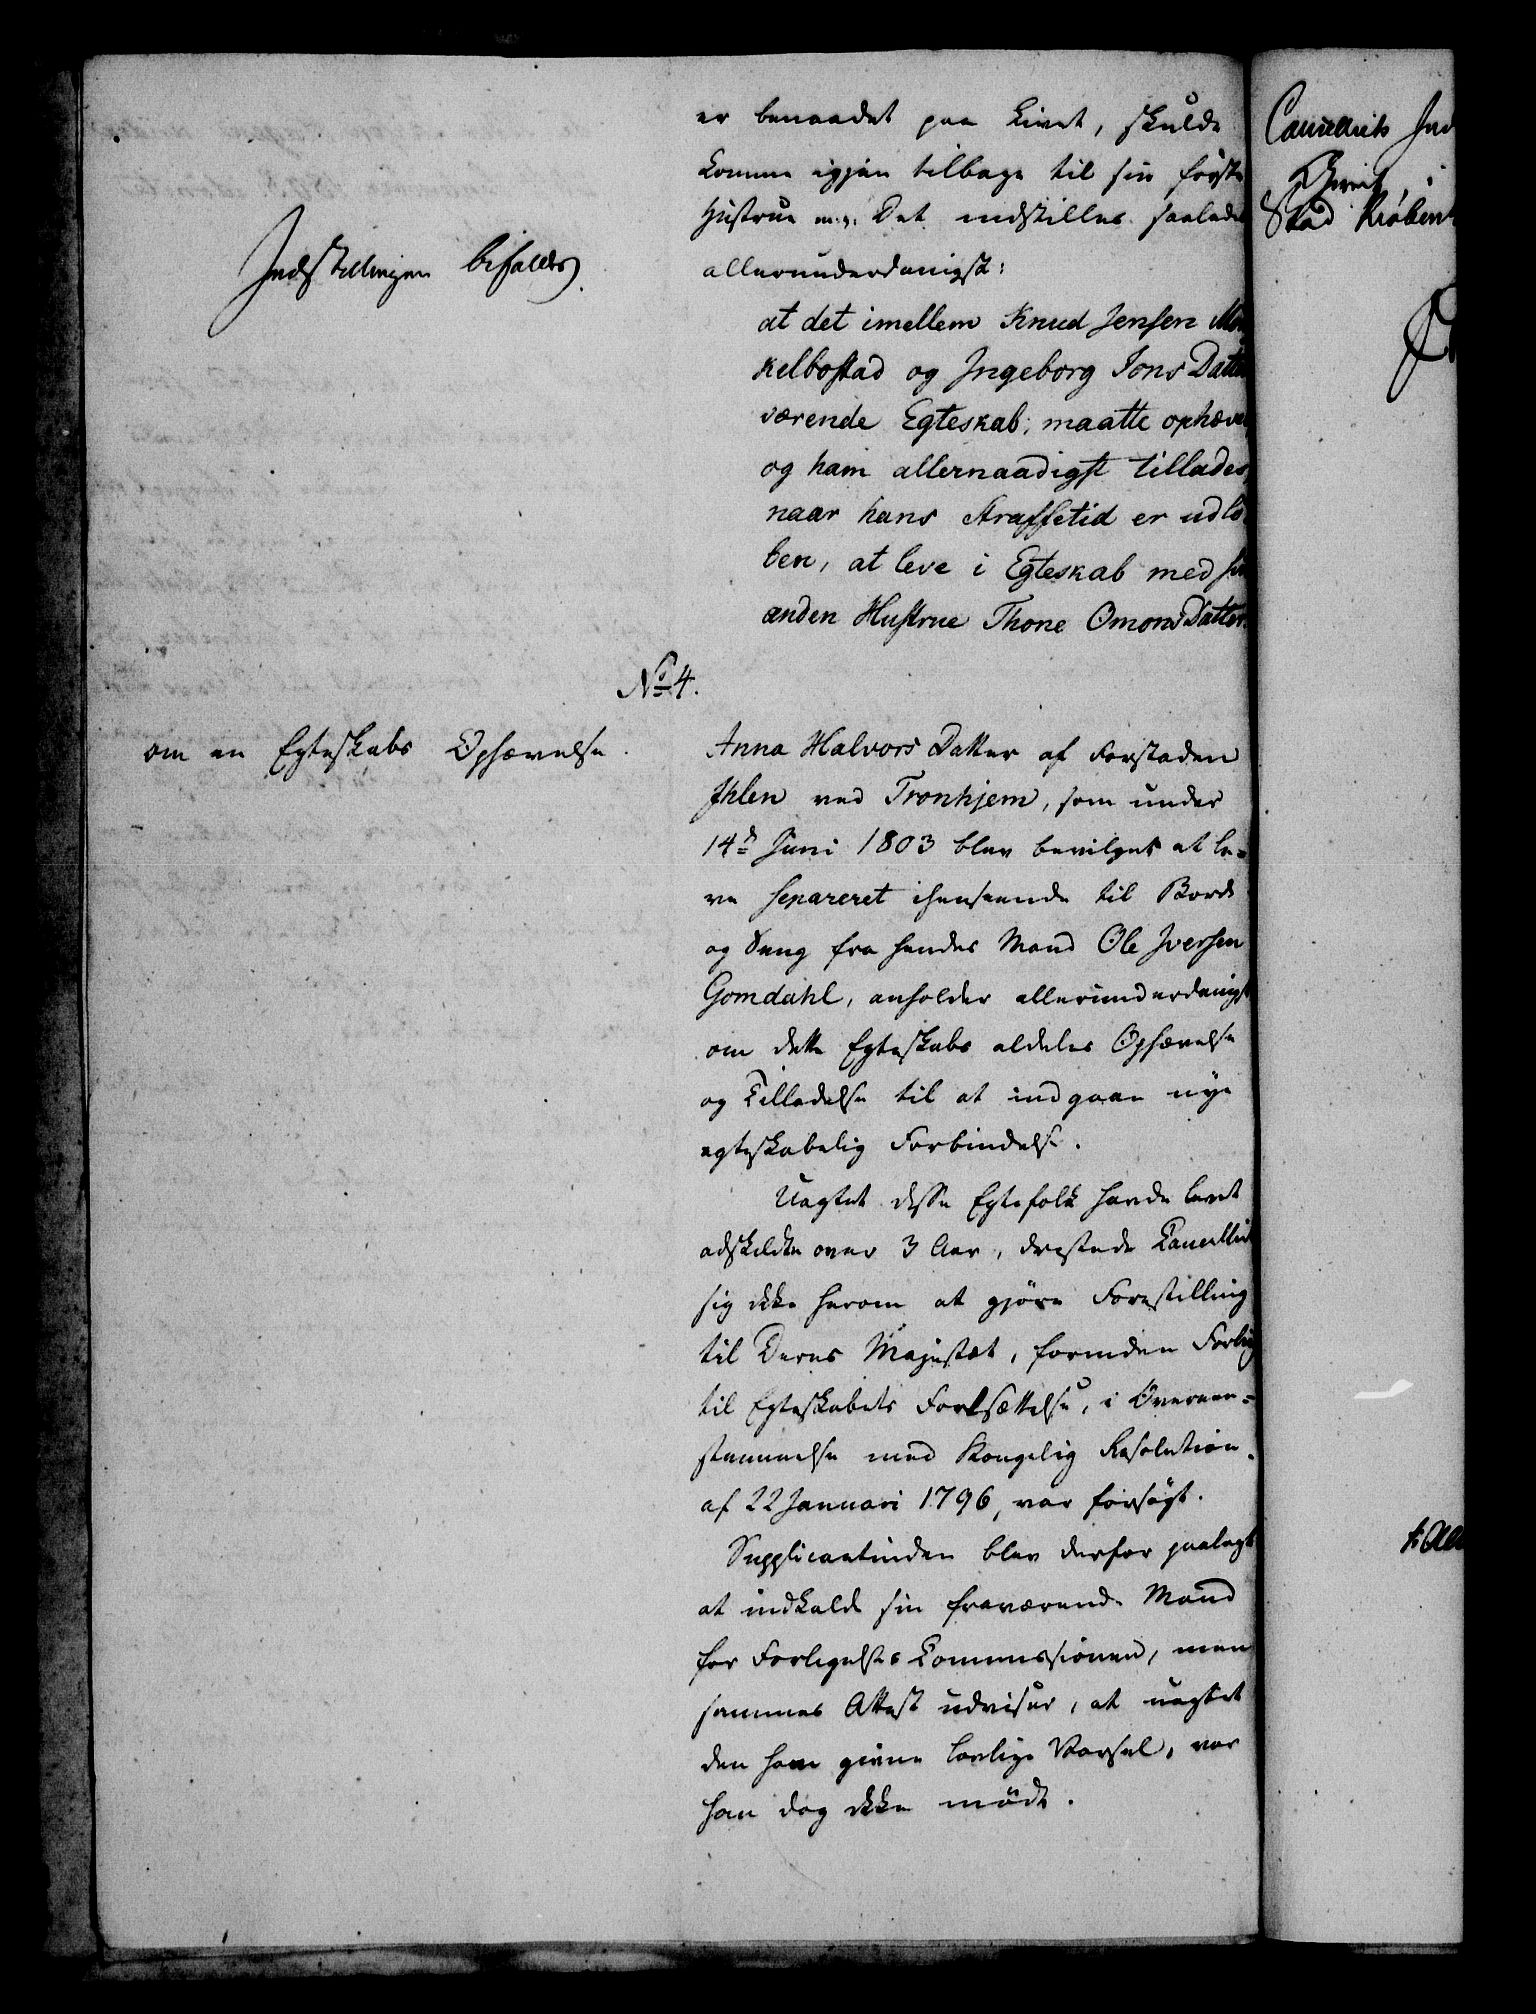 er benaadet paa Livet, skulde
komme igjen tilbage til sin første
Hustrue m.v. Det indstilles saaledes
allerunderdanigst:
Indstillingen bifaldes.
at det imellem Knud Jensen Mor
kelbostad og Ingeborg Jons Datter
værende Egteskab, maatte ophæves
og ham allernaadigst tillades,
naar hans Straffetid er udlø
ben, at leve i Egteskab med sin
anden Hustrue Thone Omons Datter.
No 4.
om en Egteskabs Ophævelse.
Anna Halvors Datter af Forstaden
Ihlen ved Tronhjem, som under
14d Juni 1803 blev bevilget at le=
ve separeret ihenseende til Bord
og Seng fra hendes Mand Ole Iversen
Gomdahl, anholder allerunderdanigst
om dette Egteskabs aldeles Ophævelse
og Tilladelse til at indgaae nye
egteskabelig Forbindelse.
Uagtet disse Egtefolk havde levet
adskildte over 3 Aar, dristede Cancelliet
sig ikke herom at gjøre Forestilling
til Deres Majestæt, forinden Forlig
til Egteskabets Fortsættelse, i Overeens=
stemmelse med Kongelig Resolution
af 22 Januari 1796, var forsøgt.
Supplicantinden blev derfor paalagt
at indkalde sin fraværende Mand
for Forligelses Commissionen, men
sammes Attest udviser, at uagtet
den ham givne lovlige Varsel, var
han dog ikke mødt.
Cancelliets Ind
Stad Kiøben